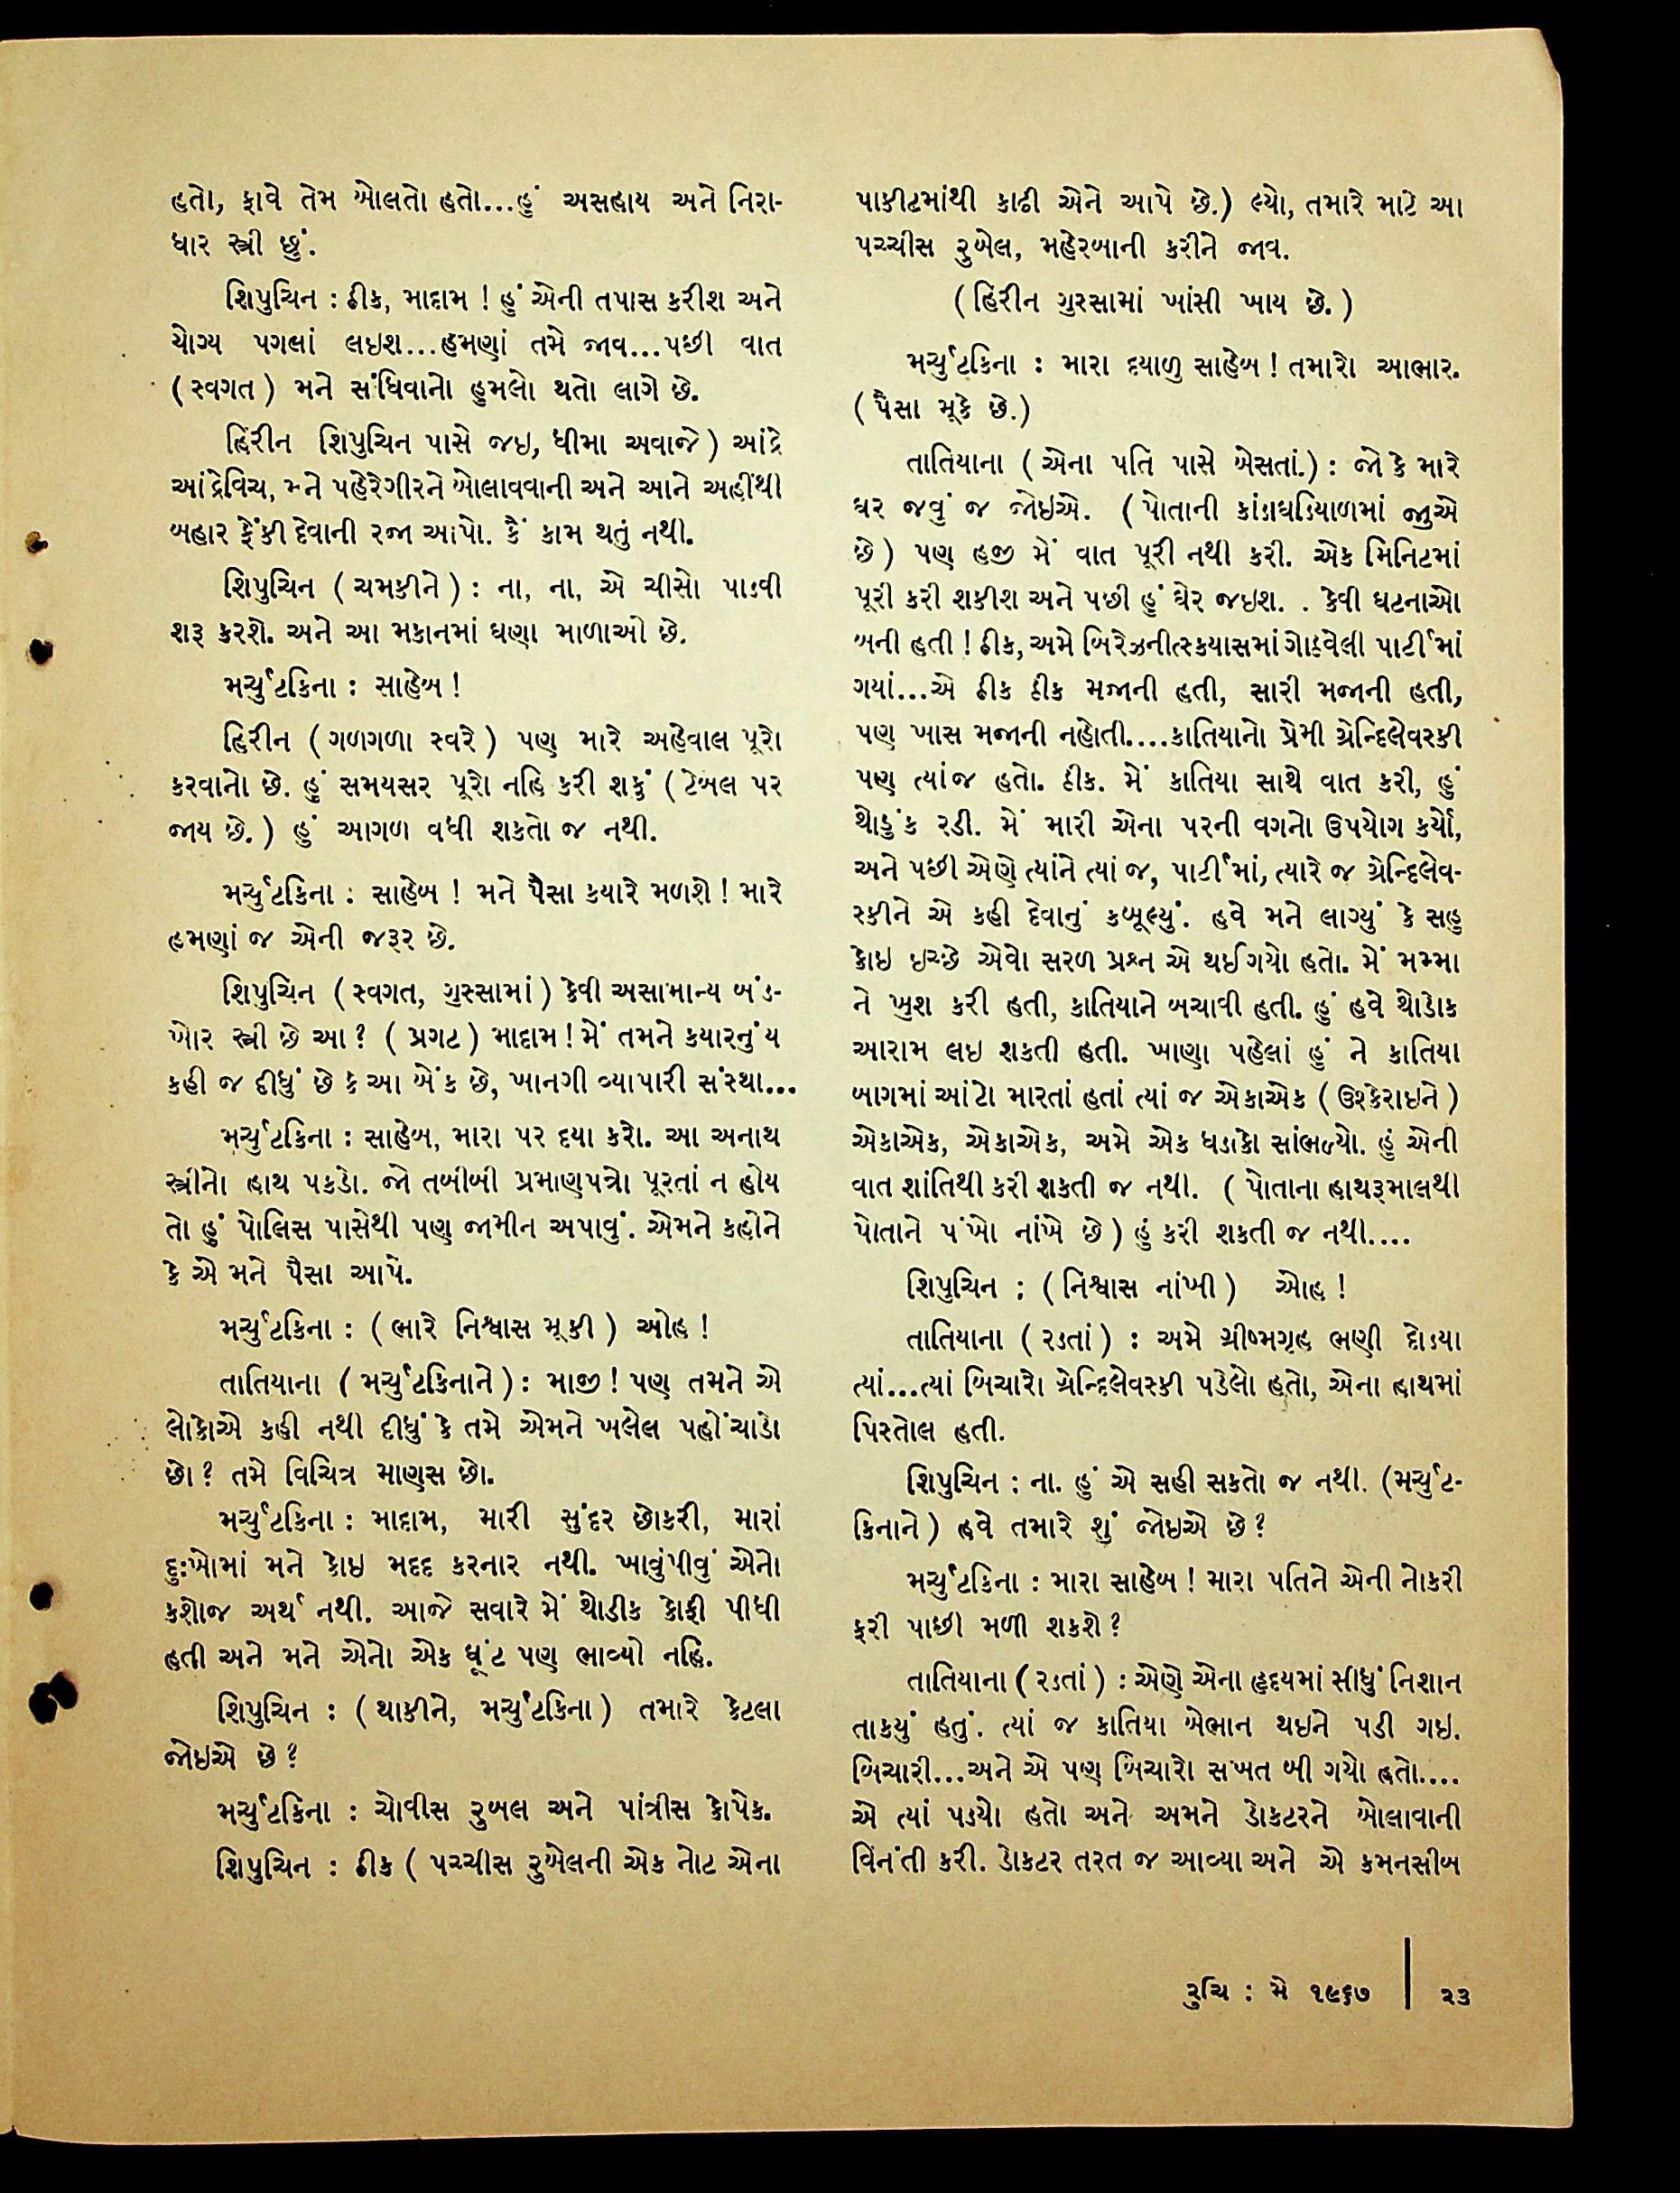 હતો, ફાવે તેમ બોલતો હતો...હું અસહાય અને નિરા-
ધાર સ્ત્રી છું.
શિપુચિન : ઠીક, માદામ ! હું એની તપાસ કરીશ અને
યોગ્ય પગલાં લઇશ...હમણાં તમે જાવ...પછી વાત
(સ્વગત) મને સંધિવાનો હુમલો થતો લાગે છે.
હિરીન શિપુચિન પાસે જઇ, ધીમા અવાજે) આંદ્રે
આંદ્રેવિચ, મને પહેરેગીરને બોલાવવાની અને આને અહીંથી
બહાર ફેંકી દેવાની રજા આપો. કૈં કામ થતું નથી.
શિપુચિન (ચમકીને) : ના, ના, એ ચીસો પાડવી
શરૂ કરશે. અને આ મકાનમાં ઘણા માળાઓ છે.
મર્ચુટકિના : સાહેબ !
હિરીન (ગળગળા સ્વરે) પણ મારે અહેવાલ પૂરો
કરવાનો છે. હું સમયસર પૂરો નહિ કરી શકું (ટેબલ પર
જાય છે.) હું આગળ વધી શકતો જ નથી.
મર્ચુટકિના : સાહેબ ! મને પૈસા કયારે મળશે ! મારે
હમણાં જ એની જરૂર છે.
શિપુચિન (સ્વગત, ગુસ્સામાં) કેવી અસામાન્ય બંડ-
ખોર સ્ત્રી છે આ? (પ્રગટ) માદામ! મેં તમને કયારનુંય
કહી જ દીધું છે કે આ બેંક છે, ખાનગી વ્યાપારી સંસ્થા...
મર્ચુટકિના : સાહેબ, મારા પર દયા કરો. આ અનાથ
સ્ત્રીનો હાથ પકડો. જો તબીબી પ્રમાણપત્રો પૂરતાં ન હોય
તો હું પોલિસ પાસેથી પણ જામીન અપાવું. એમને કહોને
કે એ મને પૈસા આપે.
મર્ચુટકિના : (ભારે નિશ્વાસ મૂકી) ઓહ !
તાતિયાના (મર્ચુટકિનાને) : માજી! પણ તમને એ
લોકોએ કહી નથી દીધું કે તમે એમને ખલેલ પહોંચાડો
છો? તમે વિચિત્ર માણસ છો.
મર્ચુટકિના : માદામ, મારી સુંદર છોકરી, મારાં
દુઃખોમાં મને કોઇ મદદ કરનાર નથી. ખાવુંપીવું એનો
કશોજ અર્થ નથી. આજે સવારે મેં થોડીક કોફી પીધી
હતી અને મને એનો એક ઘૂંટ પણ ભાવ્યો નહિ.
શિપુચિન : (થાકીને, મર્ચુટકિના) તમારે કેટલા
જોઇએ છે?
મર્ચુટકિના : ચોવીસ રુબલ અને પાંત્રીસ કોપેક.
શિપુચિન : ઠીક (પચ્ચીસ રુબેલની એક નોટ એના
પાકીટમાંથી કાઢી એને આપે છે.) લ્યો, તમારે માટે આ
પચ્ચીસ રુબેલ, મહેરબાની કરીને જાવ.
(હિરીન ગુસ્સામાં ખાંસી ખાય છે.)
મર્ચુટકિના : મારા દયાળુ સાહેબ! તમારો આભાર.
(પૈસા મૂકે છે.)
તાતિયાના (એના પતિ પાસે બેસતાં.) : જો કે મારે
ઘર જવું જ જોઇએ. (પોતાની કાંડાઘડિયાળમાં જુએ
છે) પણ હજી મેં વાત પૂરી નથી કરી. એક મિનિટમાં
પૂરી કરી શકીશ અને પછી હું ઘેર જઇશ. . કેવી ઘટનાઓ
બની હતી ! ઠીક, અમે બિરેઝનીત્સ્કયાસમાં ગોઠવેલી પાર્ટીમાં
ગયાં...એ ઠીક ઠીક મજાની હતી, સારી મજાની હતી,
પણ ખાસ મજાની નહોતી....કાતિયાનો પ્રેમી ગ્રેન્દિલેવસ્કી
પણ ત્યાંજ હતો. ઠીક. મેં કાતિયા સાથે વાત કરી, હું
થોડુંક રડી. મેં મારી એના પરની વગનો ઉપયોગ કર્યો,
અને પછી એણે ત્યાંને ત્યાં જ, પાર્ટીમાં, ત્યારે જ ગ્રેન્દિલેવ-
સ્કીને એ કહી દેવાનું કબૂલ્યું. હવે મને લાગ્યું કે સહુ
કોઇ ઇચ્છે એવો સરળ પ્રશ્ન એ થઈ ગયો હતો. મેં મમ્મા
ને ખુશ કરી હતી, કાતિયાને બચાવી હતી. હું હવે થોડોક
આરામ લઇ શકતી હતી. ખાણા પહેલાં હું ને કાતિયા
બાગમાં આંટો મારતાં હતાં ત્યાં જ એકાએક (ઉશ્કેરાઇને)
એકાએક, એકાએક, અમે એક ધડાકો સાંભળ્યો. હું એની
વાત શાંતિથી કરી શકતી જ નથી. (પોતાના હાથરૂમાલથી
પોતાને પંખો નાંખે છે) હું કરી શકતી જ નથી....
શિપુચિન : (નિશ્વાસ નાંખી) ઓહ !
તાતિયાના (રડતાં) : અમે ગ્રીષ્મગૃહ ભણી દોડયા
ત્યાં...ત્યાં બિચારો ગ્રેન્દિલેવસ્કી પડેલો હતો, એના હાથમાં
પિસ્તોલ હતી.
શિપુચિન : ના. હું એ સહી સકતો જ નથી. (મર્ચુટ-
કિનાને) હવે તમારે શું જોઇએ છે?
મર્ચુટકિના : મારા સાહેબ ! મારા પતિને એની નોકરી
ફરી પાછી મળી શકશે?
તાતિયાના (રડતાં) : એણે એના હૃદયમાં સીધું નિશાન
તાકયું હતું. ત્યાં જ કાતિયા બેભાન થઇને પડી ગઇ.
બિચારી...અને એ પણ બિચારો સખત બી ગયો હતો....
એ ત્યાં પડયો હતો અને અમને ડોકટરને બોલાવાની
વિનંતી કરી. ડોકટર તરત જ આવ્યા અને એ કમનસીબ
રુચિ : મે ૧૯૬૭ | ૨૩